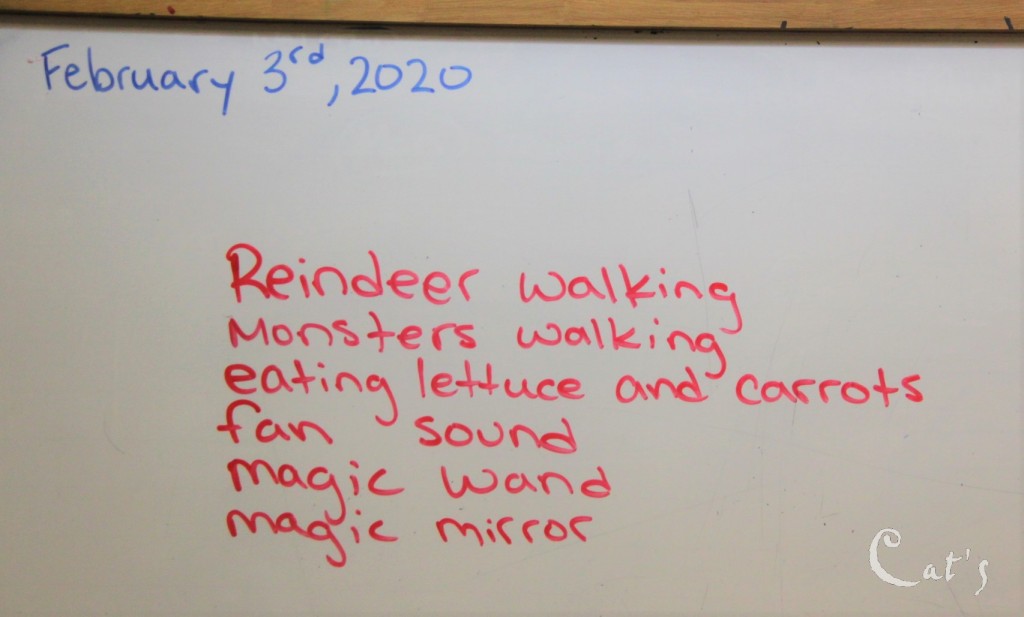 February 3rd, 2020
Reindeer walking
Monsters walking
eating lettuce and carrots
fan sound
magic wand
magic mirror
Cat's